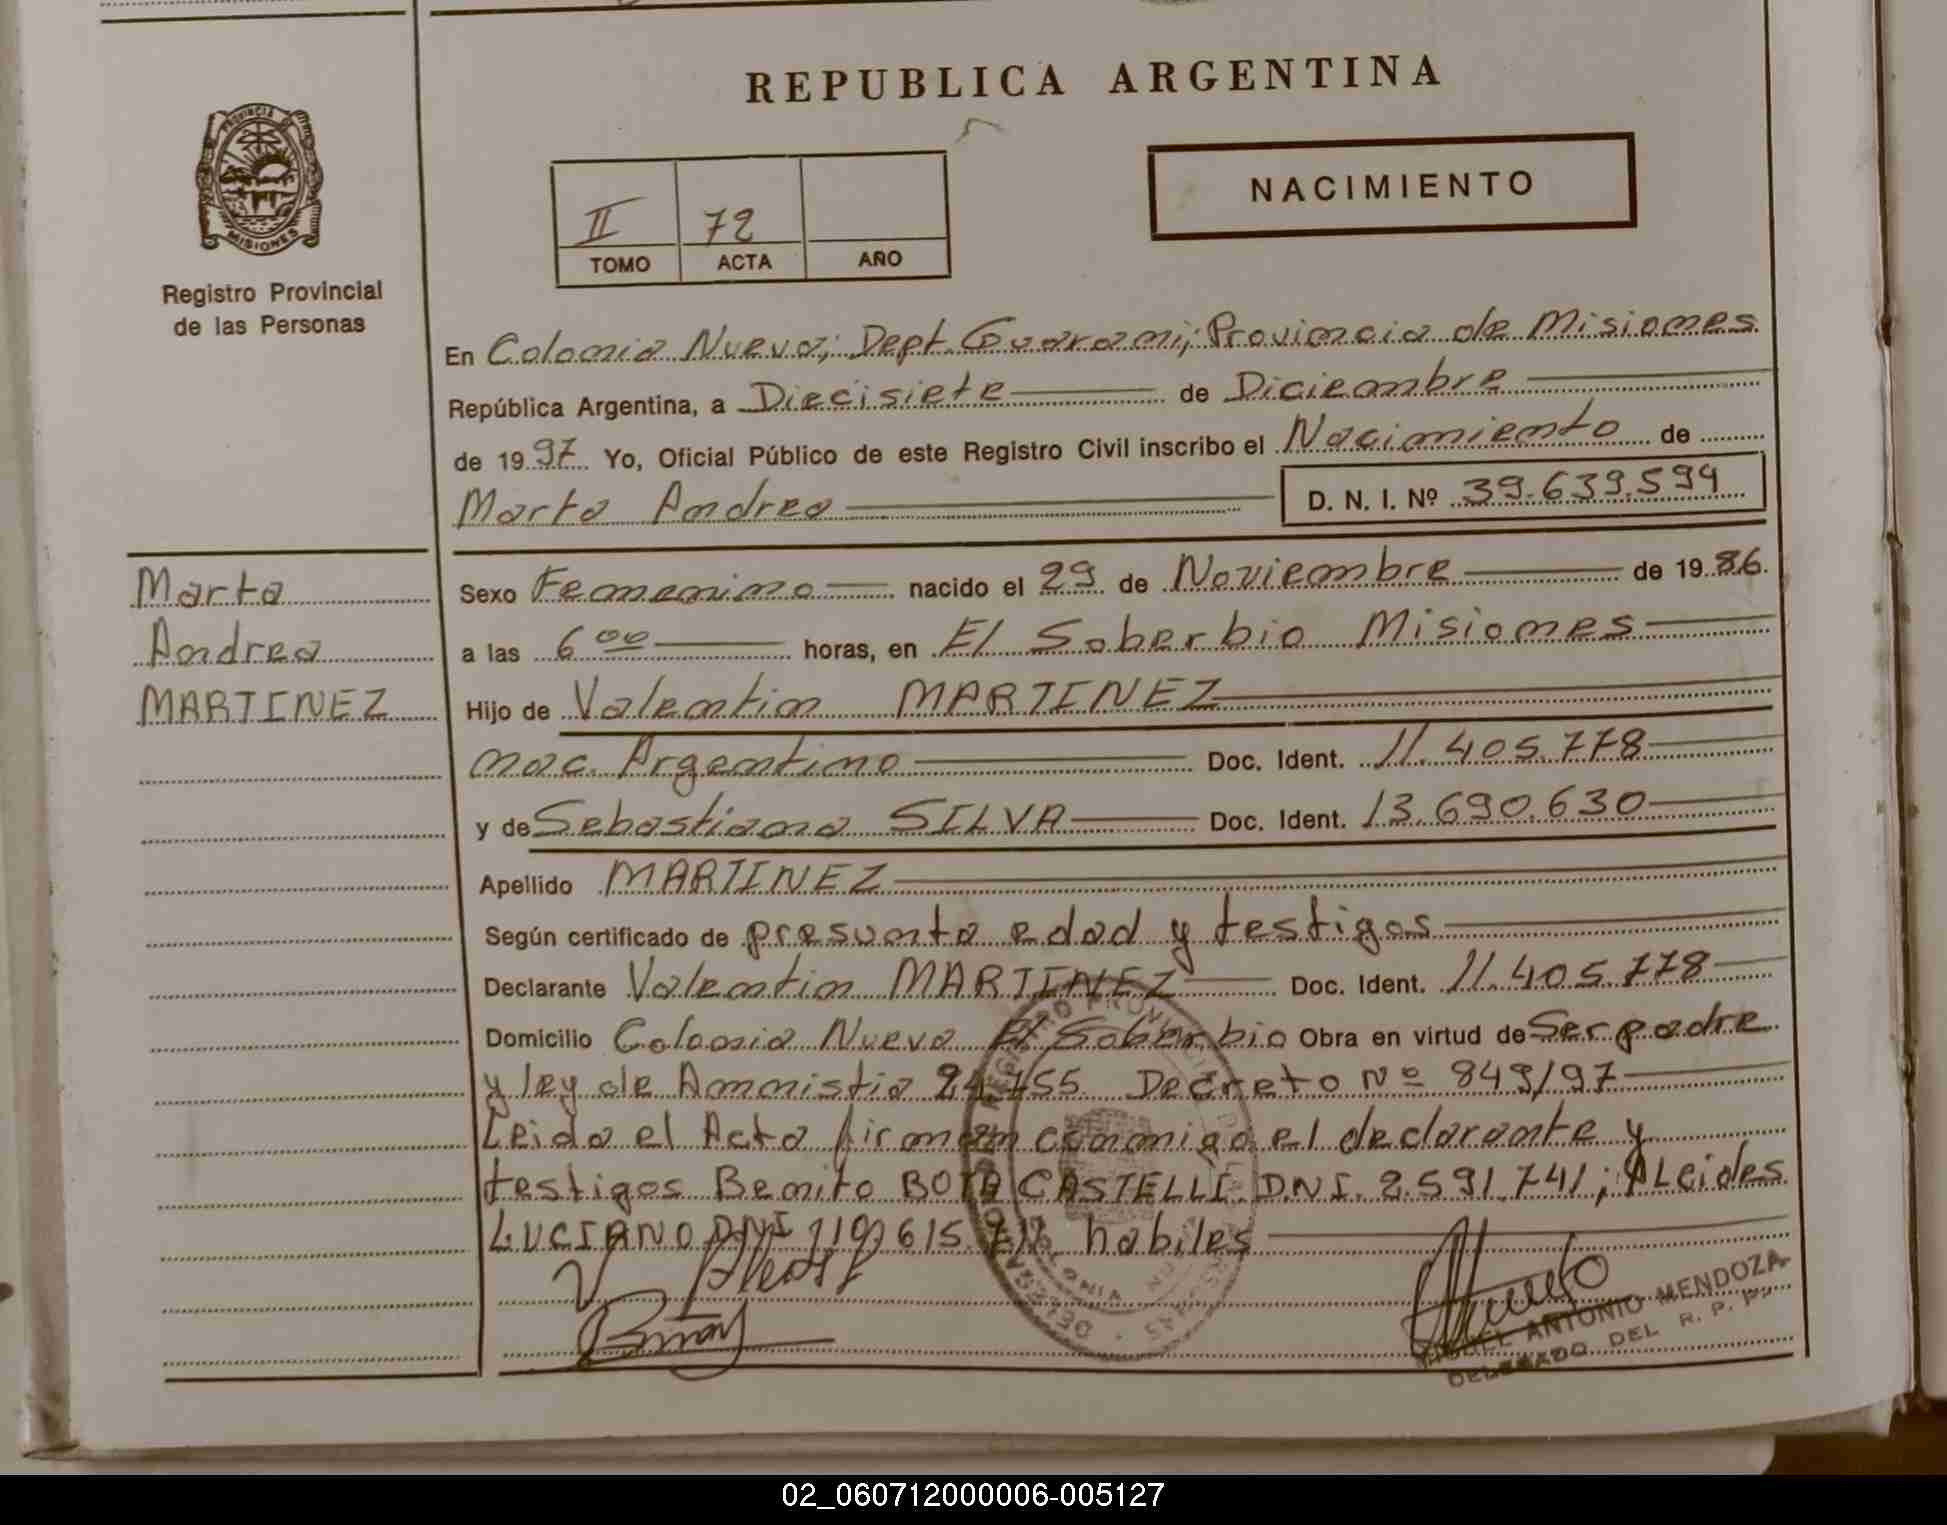 REPUBLICA ARGENTINA
PROVINCIA
MISIONES
Registro Provincial
de las Personas
II 72
TOMO ACTA AÑO
NACIMIENTO
En Colonia Nueva; Dept. Guarani; Provincia de Misiones
República Argentina, a Diecisiete de Diciembre
de 1997 Yo, Oficial Público de este Registro Civil inscribo el Nacimiento de
Marta Andrea D. N. I. Nº 39.639.594
Marta
Andrea
MARTINEZ
Sexo Femenino nacido el 29 de Noviembre de 1986
a las 6 00 horas, en El Soberbio Misiones
Hijo de Valentin MARTINEZ
nac. Argentino Doc. Ident. 11.405.778
y de Sebastiana SILVA Doc. Ident. 13.690.630
Apellido MARTINEZ
Según certificado de presunta edad y testigos
Declarante Valentin MARTINEZ Doc. Ident. 11.405.778
Domicilio Colonia Nueva El Soberbio Obra en virtud de Ser padre
y ley de Amnistia 24.755 Decreto Nº 849/97
Leida el Acta firman conmigo el declarante y
testigos Benito BOTA CASTELLI D.N.I. 2.591.741; ALcides
LUCIANO DNI habiles
ANTONIO MENDOZA
DELEGADO DEL R. P. P.
02_060712000006-005127